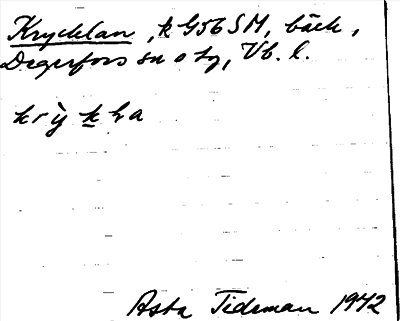 Krycklan, k G56 SM, bäck,
Degerfors sn o tg, Vb. l.
krỳkla
Asta Tideman 1942